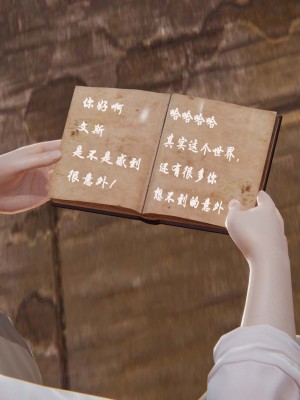 你好啊
艾斯
是不是感到
很意外！
哈哈哈哈
其实这个世界，
还有很多你
想不到的意外